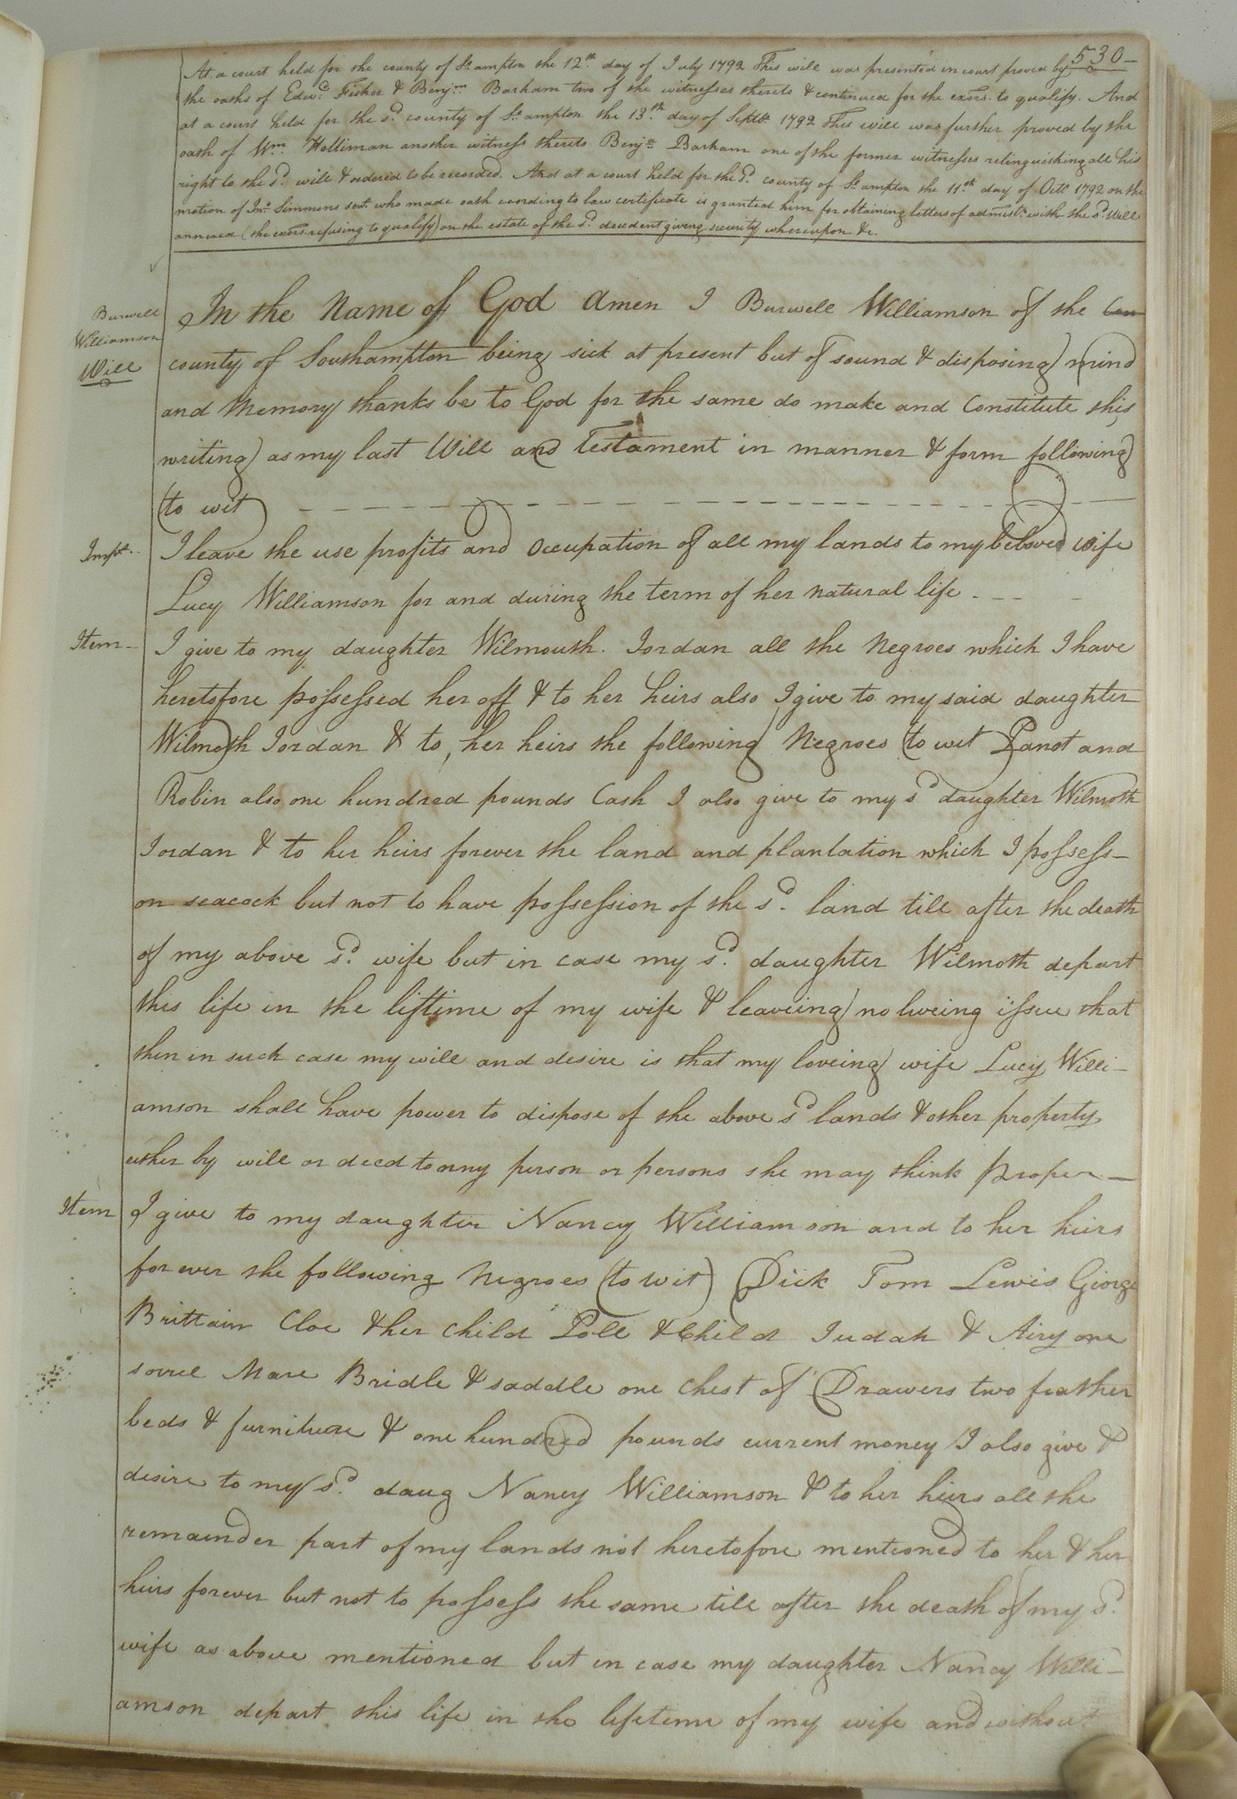 530
At a court held for the county of So.ampton the 12th day of July 1792 This will was presented in court proved by
the oaths of Edwd. Fisher & Benjmn. Barham two of the witnesses thereto & continued for the exors. to qualify. And
at a court held for the sd. county of So.ampton the 13th day of Septr. 1792 This will was further proved by the
oath of Wm. Holliman another witness thereto Benjn. Barham one of the former witnesses relinquishing all his
right to the sd. will & ordered to be recorded. And at a court held for the sd. county of So.ampton the 11th day of Octr. 1792 on the
motion of Jno. Simmons who made oath according to law certificate is granted him for obtaining letters of admist. with the sd. Will
annexed (the exors. refusing to qualify) on the estate of the sd. decedent giving security whereupon &c.
Burwell
Williamson
Will
In the Name of God Amen I Burwell Williamson of the
county of Southampton being sick at present but of sound & disposing mind
and Memory thanks be to God for the same do make and Constitute this
writing as my last Will and Testament in manner & form following
(to wit)
Impt. I leave the use profits and Occupation of all my lands to my beloved wife
Lucy Williamson for and during the term of her natural life
Item I give to my daughter Wilmouth Jordan all the Negroes which I have
heretofore possessed her off & to her heirs also I give to my said daughter
Wilmoth Jordan & to her heirs the following Negroes (to wit) and
Robin also one hundred pounds Cash I also give to my sd. daughter Wilmoth
Jordan & to her heirs forever the land and plantation which I possess
on seacock but not to have possession of the sd. land till after the death
of my above sd. wife but in case my sd. daughter Wilmoth depart
this life in the liftime of my wife & leaveing no liveing issue that
then in such case my will and desire is that my loveing wife Lucy Willi-
amson shall have power to dispose of the above sd lands & other property
either by will or deed to any person or persons she may think proper
Item I give to my daughter Nancy Williamson and to her heirs
forever the following Negroes (to wit) Dick Tom Lewis George
Brittain Cloe & her child Poll & Child Judah & Airy one
sorrel Mare Bridle & saddle one Chest of Drawers two feather
beds & furniture & one hundred pounds current money I also give &
desire to my sd. daug Nancy Williamson & to her heirs all the
remainder part of my lands not heretofore mentioned to her & her
heirs forever but not to possess the same till after the death of my sd.
wife as above mentioned but in case my daughter Nancy Willi-
amson depart this life in the lifetime of my wife and without